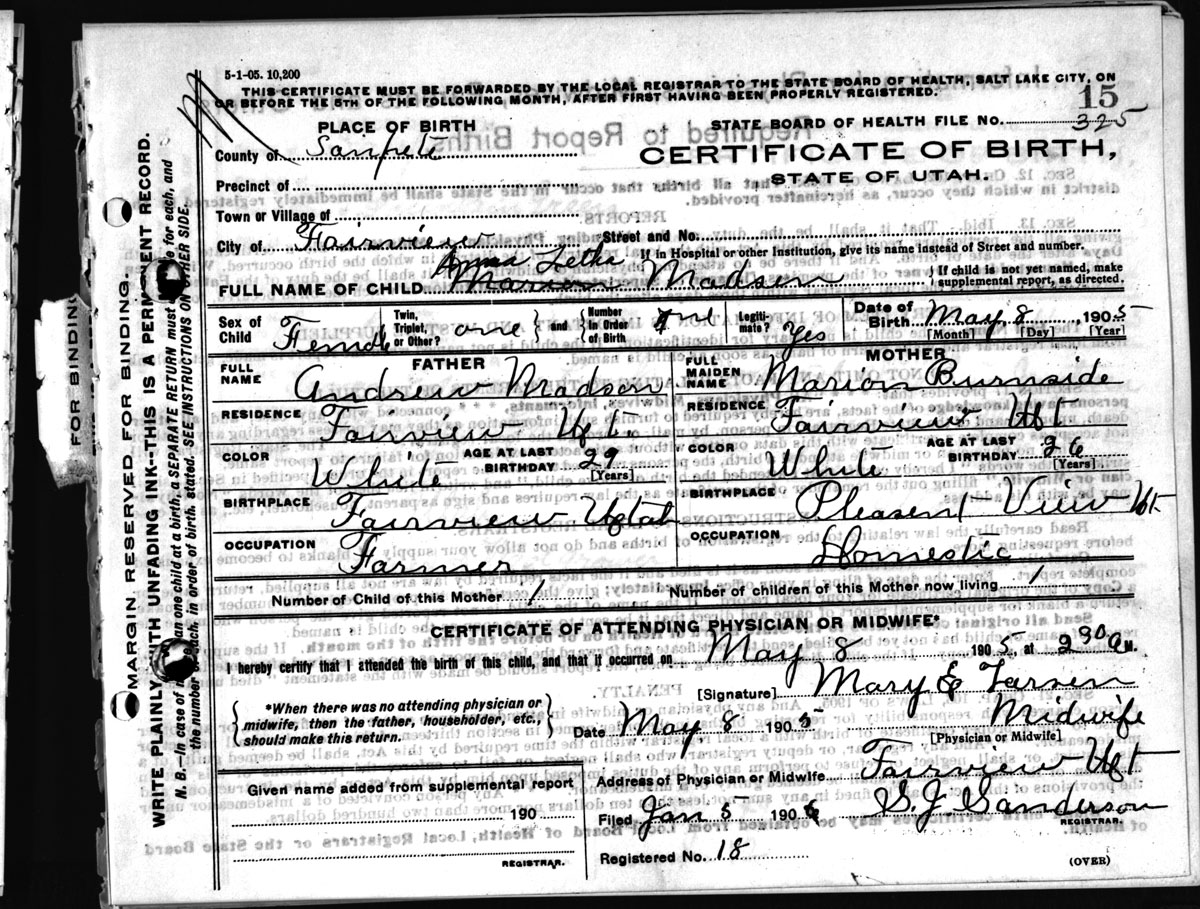 5-1-05. 10,200
THIS CERTIFICATE MUST BE FORWARDED BY THE LOCAL REGISTRAR TO THE STATE BOARD OF HEALTH, SALT LAKE CITY, ON
OR BEFORE THE 5TH OF THE FOLLOWING MONTH, AFTER FIRST HAVING BEEN PROPERLY REGISTERED.
15
PLACE OF BIRTH
STATE BOARD OF HEALTH FILE NO. 325
County of Sanpete
CERTIFICATE OF BIRTH,
STATE OF UTAH.
Precinct of
Town or Village of
City of Fairview Street and No.
Anna Letha If in Hospital or other Institution, give its name instead of Street and number.
FULL NAME OF CHILD Marion Madsen } If child is not yet named, make supplemental report, as directed.
Sex of Child Female Twin, Triplet, or Other? one } and { Number in Order of Birth one Legitimate? Yes Date of Birth May 8 1905
[Month] [Day] [Year]
FATHER MOTHER
FULL NAME Andrew Madsen FULL MAIDEN NAME Marion Burnside
RESIDENCE Fairview Ut. RESIDENCE Fairview Ut
COLOR White AGE AT LAST BIRTHDAY 29 [Years] COLOR White AGE AT LAST BIRTHDAY 26 [Years]
BIRTHPLACE Fairview Utah BIRTHPLACE Pleasent View Ut
OCCUPATION Farmer OCCUPATION Domestic
Number of Child of this Mother 1 Number of children of this Mother now living 1
CERTIFICATE OF ATTENDING PHYSICIAN OR MIDWIFE*
I hereby certify that I attended the birth of this child, and that if occurred on May 8 1905, at 2 30 A M.
[Signature] Mary E Larsen
*When there was no attending physician or midwife, then the father, householder, etc., should make this return.
Date May 8 1905 Midwife
[Physician or Midwife]
Address of Physician or Midwife Fairview Ut
Given name added from supplemental report
190
REGISTRAR.
Filed Jan 5 1906 S. J. Sanderson
REGISTRAR.
Registered No. 18
(OVER)
MARGIN RESERVED FOR BINDING
WRITE PLAINLY WITH UNFADING INK--THIS IS A PERMANENT RECORD.
N. B.--In case of an one child at a birth, a SEPARATE RETURN must for each, and
the number each, in order of birth, stated. SEE INSTRUCTIONS ON OTHER SIDE.
FOR BINDING